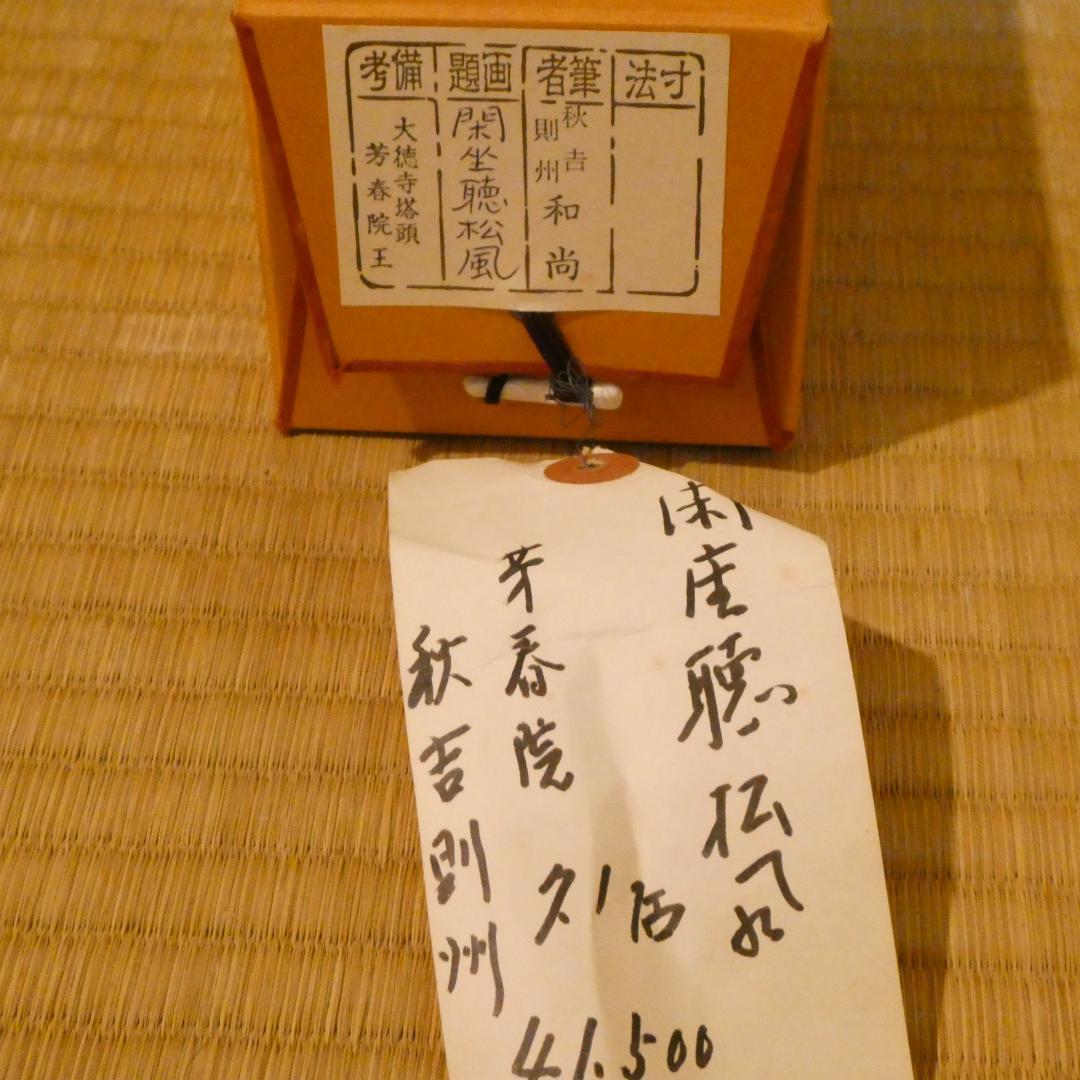 寸法
筆者
秋吉
則州
和尚
画題
閑坐聴松風
備考
大徳寺塔頭
芳春院王
閑座聴松風
芳春院
秋吉則州
41.500